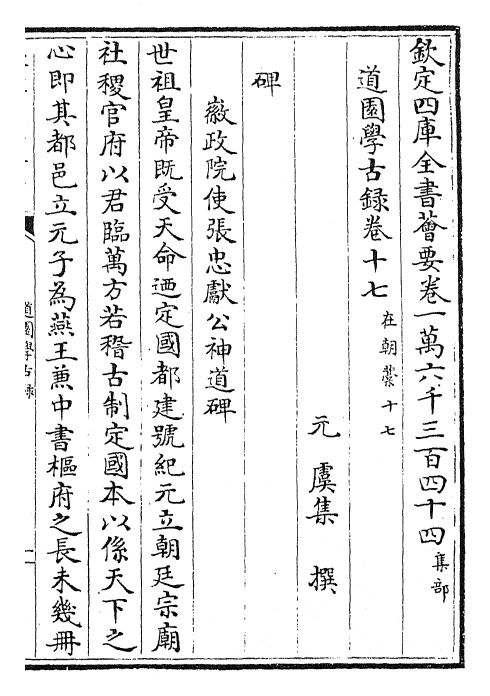 欽定四庫全書薈要卷一萬六千三百四十四 集部
道園學古録卷十七 在朝藁十七
元 虞集 撰
碑
徽政院使張忠獻公神道碑
世祖皇帝既受天命迺定國都建號紀元立朝廷宗廟
社稷官府以君臨萬方若稽古制定國本以係天下之
心即其都邑立元子為燕王兼中書樞府之長未幾冊
道園學古録